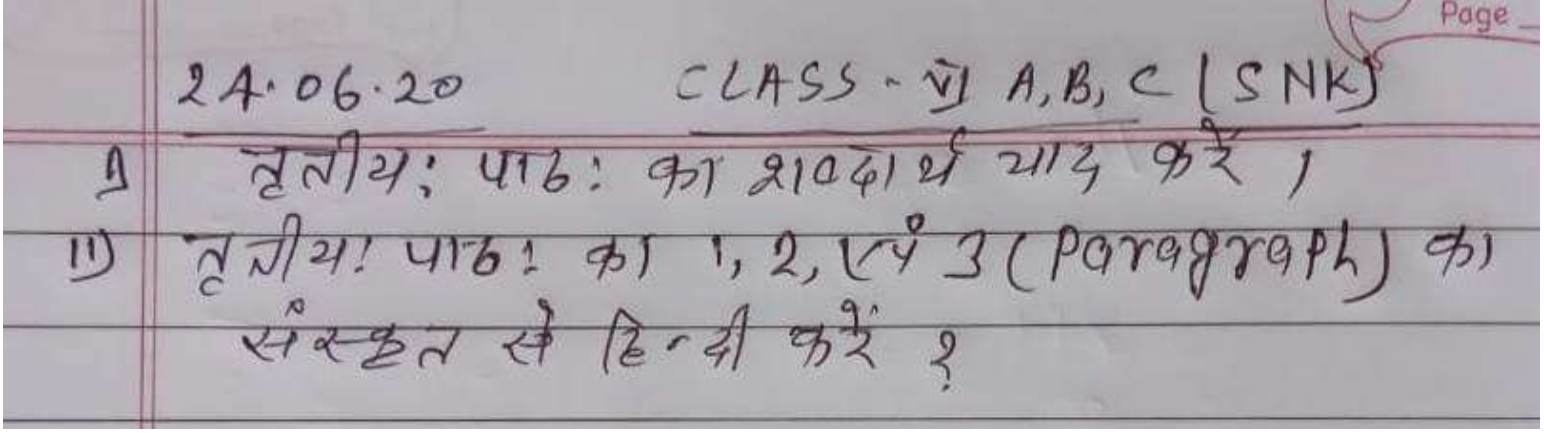 Page
24.06.20 CLASS - VI A, B, C (SNK)
I) तृतीय: पाठ: का शब्दार्थ याद करें ।
II) तृतीय: पाठ: का 1, 2, एवं 3 (Paragraph) का
संस्कृत से हिन्दी करें ?